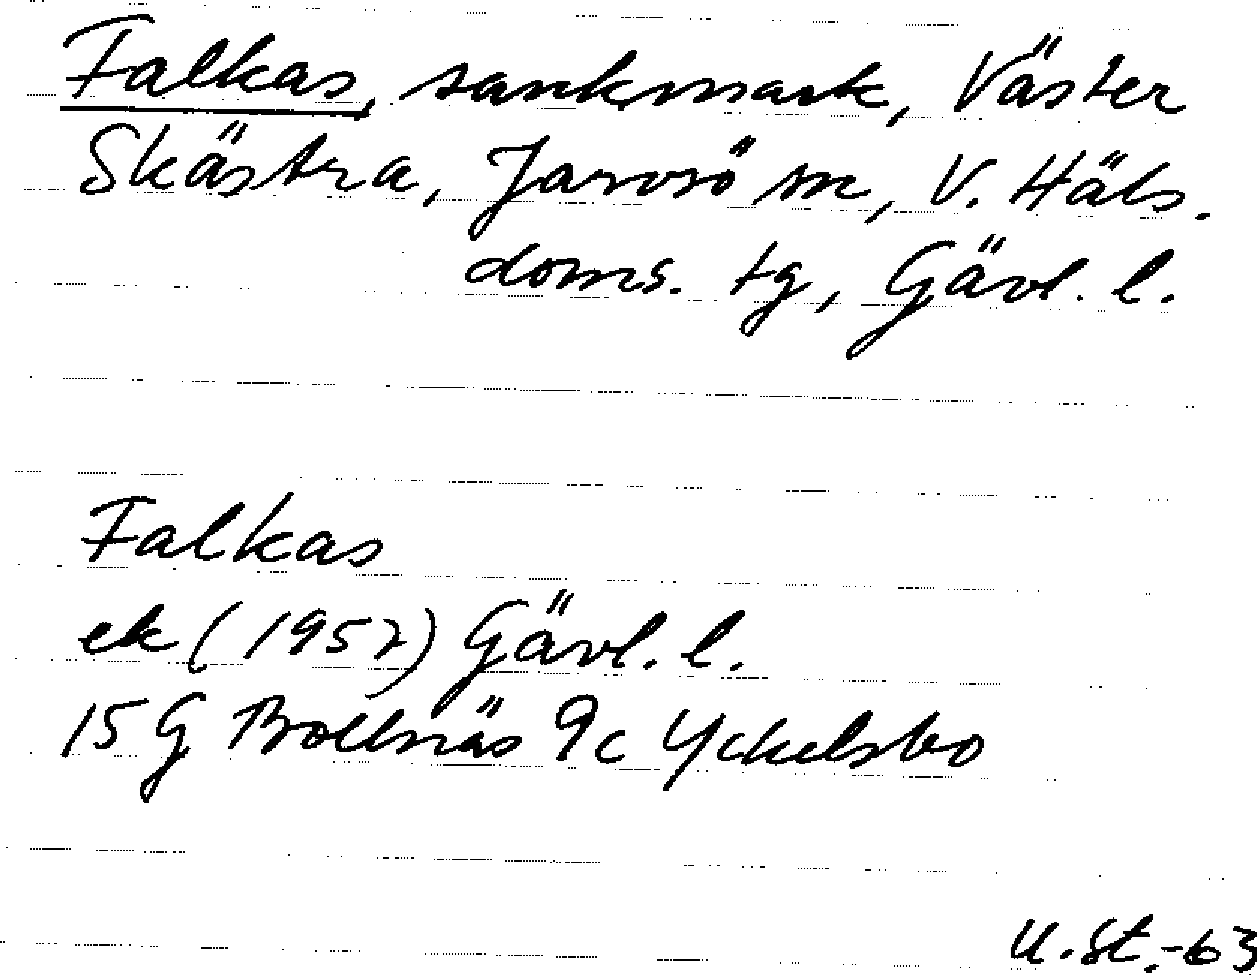 Falkas, sankmark, Väster
Skästra, Jarvsö sn, V. Häls.
doms. tg, Gävl. l.
Falkas
ek (1957) Gävl. l.
15 G Bollnäs 9c Yckelsbo
U.St.-63